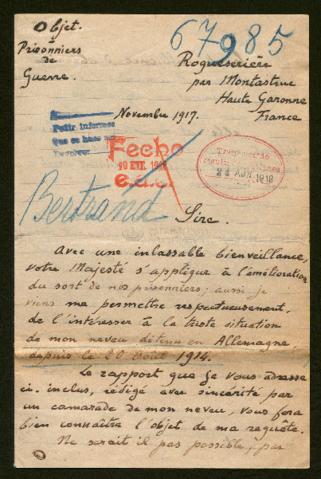 Objet.
67985
Prisonniers
de
Guerre.
Roqueserière
par Montastruc
Haute Garonne
France
Novembre 1917.
Pedir informes
que se hace
Fecho
19 ENE. 1918
24 1918
Bertrand
Sire.
Avec une inlassable bienveillance,
votre Majesté s'applique à l'amélioration
du sort de nos prisonniers; aussi je
viens me permettre respectueusement,
de l'intéresser à la triste situation
de mon neveu détenu en Allemagne
depuis le 20 Août 1914.
Le rapport que je vous adresse
ci-inclus, rédigé avec sincérité par
un camarade de mon neveu, vous fera
bien connaître l'objet de ma requête.
Ne serait il pas possible, par